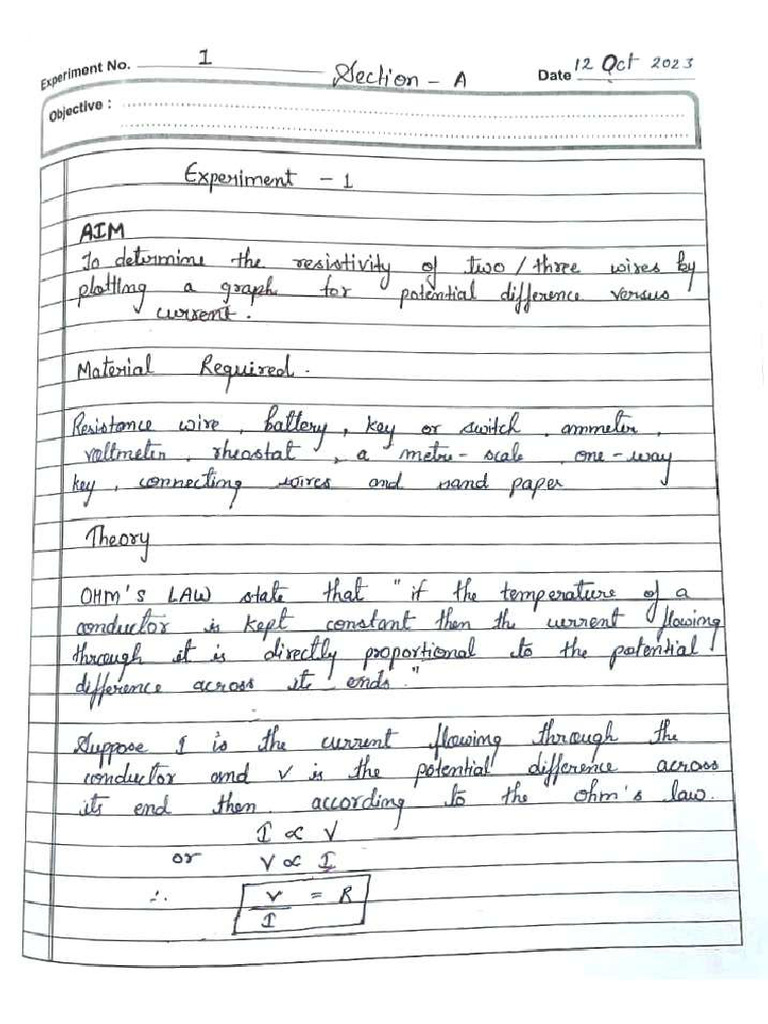 Experiment No. 1
Section - A
Date 12 Oct 2023
Objective :
Experiment - 1
AIM
To determine the resistivity of two / three wires by
plotting a graph for potential difference versus
current.
Material Required.
Resistance wire, battery, key or switch, ammeter,
voltmeter, rheostat, a metre-scale, one-way
key, connecting wires and sand paper
Theory
OHM'S LAW state that "if the temperature of a
conductor is kept constant then the current flowing
through it is directly proportional to the potential
difference across its ends."
Suppose I is the current flowing through the
conductor and V is the potential difference across
its end then according to the ohm's law.
I ∝ V
or V ∝ I
∴ V/I = R